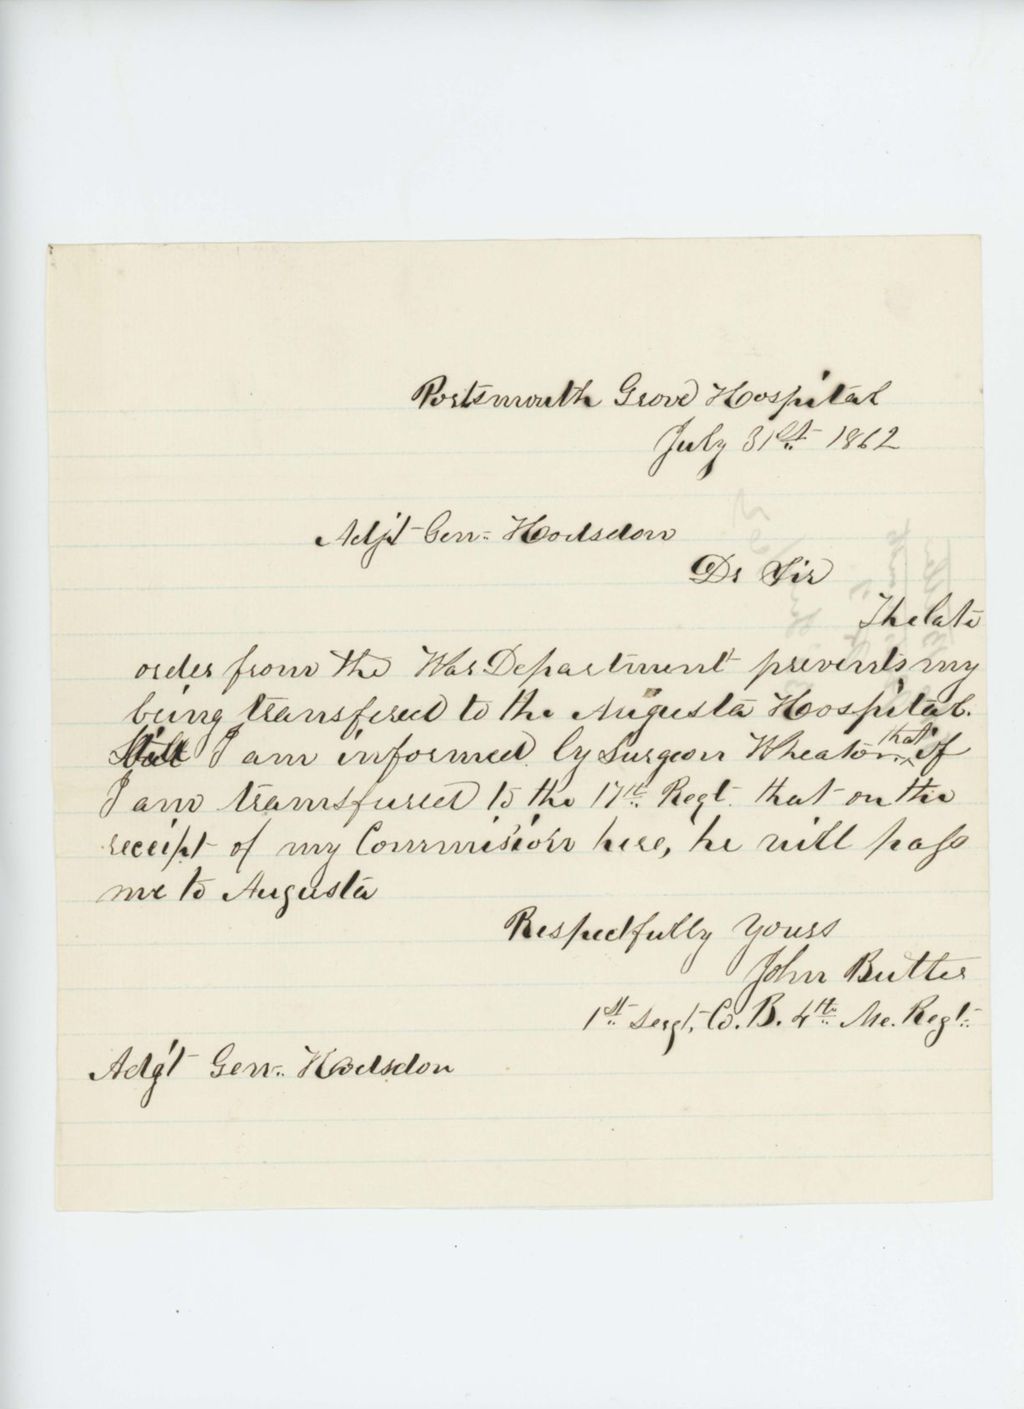 Portsmouth Grove Hospital
July 31st 1862
Adjt Gen. Hodsdon
Dr Sir
The late
order from the War Department prevents my
being transfered to the Augusta Hospital.
Still I am informed by Surgeon Wheaton that if
I am transfured to the 17th Regt. that on the
receipt of my Commision here, he will pass
me to Augusta
Respectfully Yours
John Butler
1st Sergt, Co. B. 4th Me. Regt.
Adgt Gen. Hodsdon